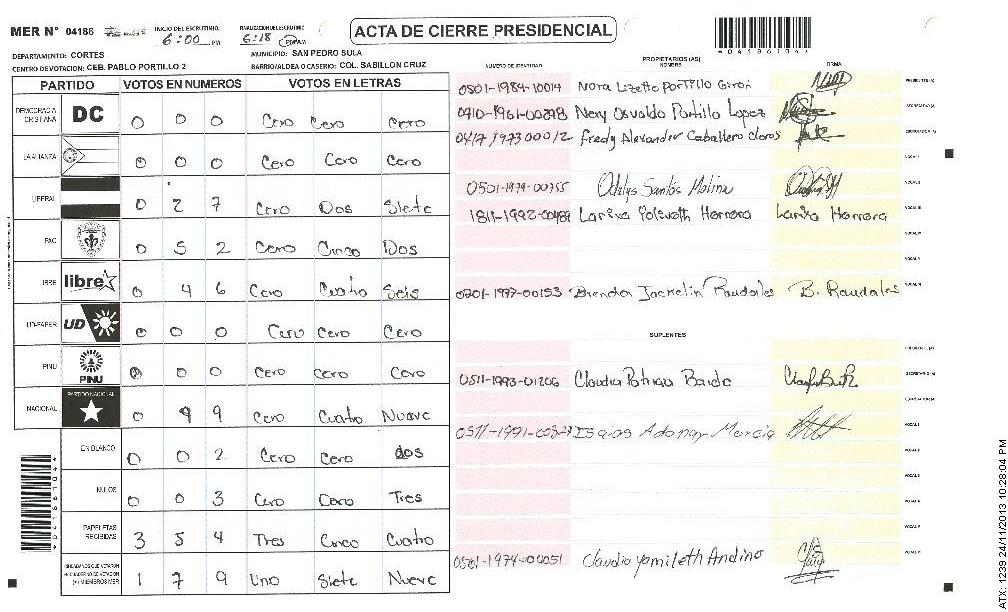 MER N° 04186 INICIO DEL ESCRUTINIO: 6:00 PM FINALIZACION DEL ESCRUTINIO: 6:18 PM ACTA DE CIERRE PRESIDENCIAL
DEPARTAMENTO: CORTES MUNICIPIO: SAN PEDRO SULA
CENTRO DE VOTACION: CEB. PABLO PORTILLO 2 BARRIO/ALDEA O CASERIO: COL. SABILLON CRUZ
PARTIDO VOTOS EN NUMEROS VOTOS EN LETRAS
DEMOCRACIA CRISTIANA DC 0 0 0 Cero Cero Cero
LA ALIANZA 0 0 0 Cero Cero Cero
LIBERAL 0 2 7 Cero Dos Siete
PAC 0 5 2 Cero Cinco Dos
LIBRE libre 0 4 6 Cero Cuatro Seis
UD-FAPER UD 0 0 0 Cero Cero Cero
PINU PINU 0 0 0 Cero Cero Cero
NACIONAL PARTIDO NACIONAL 0 4 9 Cero Cuatro Nueve
EN BLANCO 0 0 2 Cero Cero dos
NULOS 0 0 3 Cero Cero Tres
PAPELETAS RECIBIDAS 3 5 4 Tres Cinco Cuatro
CIUDADANOS QUE VOTARON
(+) MIEMBROS MER 1 7 9 Uno Siete Nueve
PROPIETARIOS (AS)
NUMERO DE IDENTIDAD NOMBRE FIRMA
0501-1984-10014 Nora Lizette Portillo Giron PRESIDENTE (A)
0410-1961-00398 Nery Osvaldo Portillo Lopez SECRETARIO (A)
0417 1973 00012 Fredy Alexander Caballero Claros ESCRUTADOR (A)
VOCAL I
0501-1979-00755 Odalys Santos Molina VOCAL II
1811-1992-00489 Larixa Herrera Larixa Herrera VOCAL III
VOCAL IV
VOCAL V
0201-1997-00153 Brenda Jackelin Raudales B. Raudales VOCAL VI
SUPLENTES
PRESIDENTE (A)
0511-1993-01206 Claudia Patricia SECRETARIO (A)
ESCRUTADOR (A)
Isaias Adonay Mercia VOCAL I
VOCAL II
VOCAL III
VOCAL IV
VOCAL V
0501-1974-04051 Claudia Yamileth Andino VOCAL VI
ATX: 1239 24/11/2013 10:28:04 PM